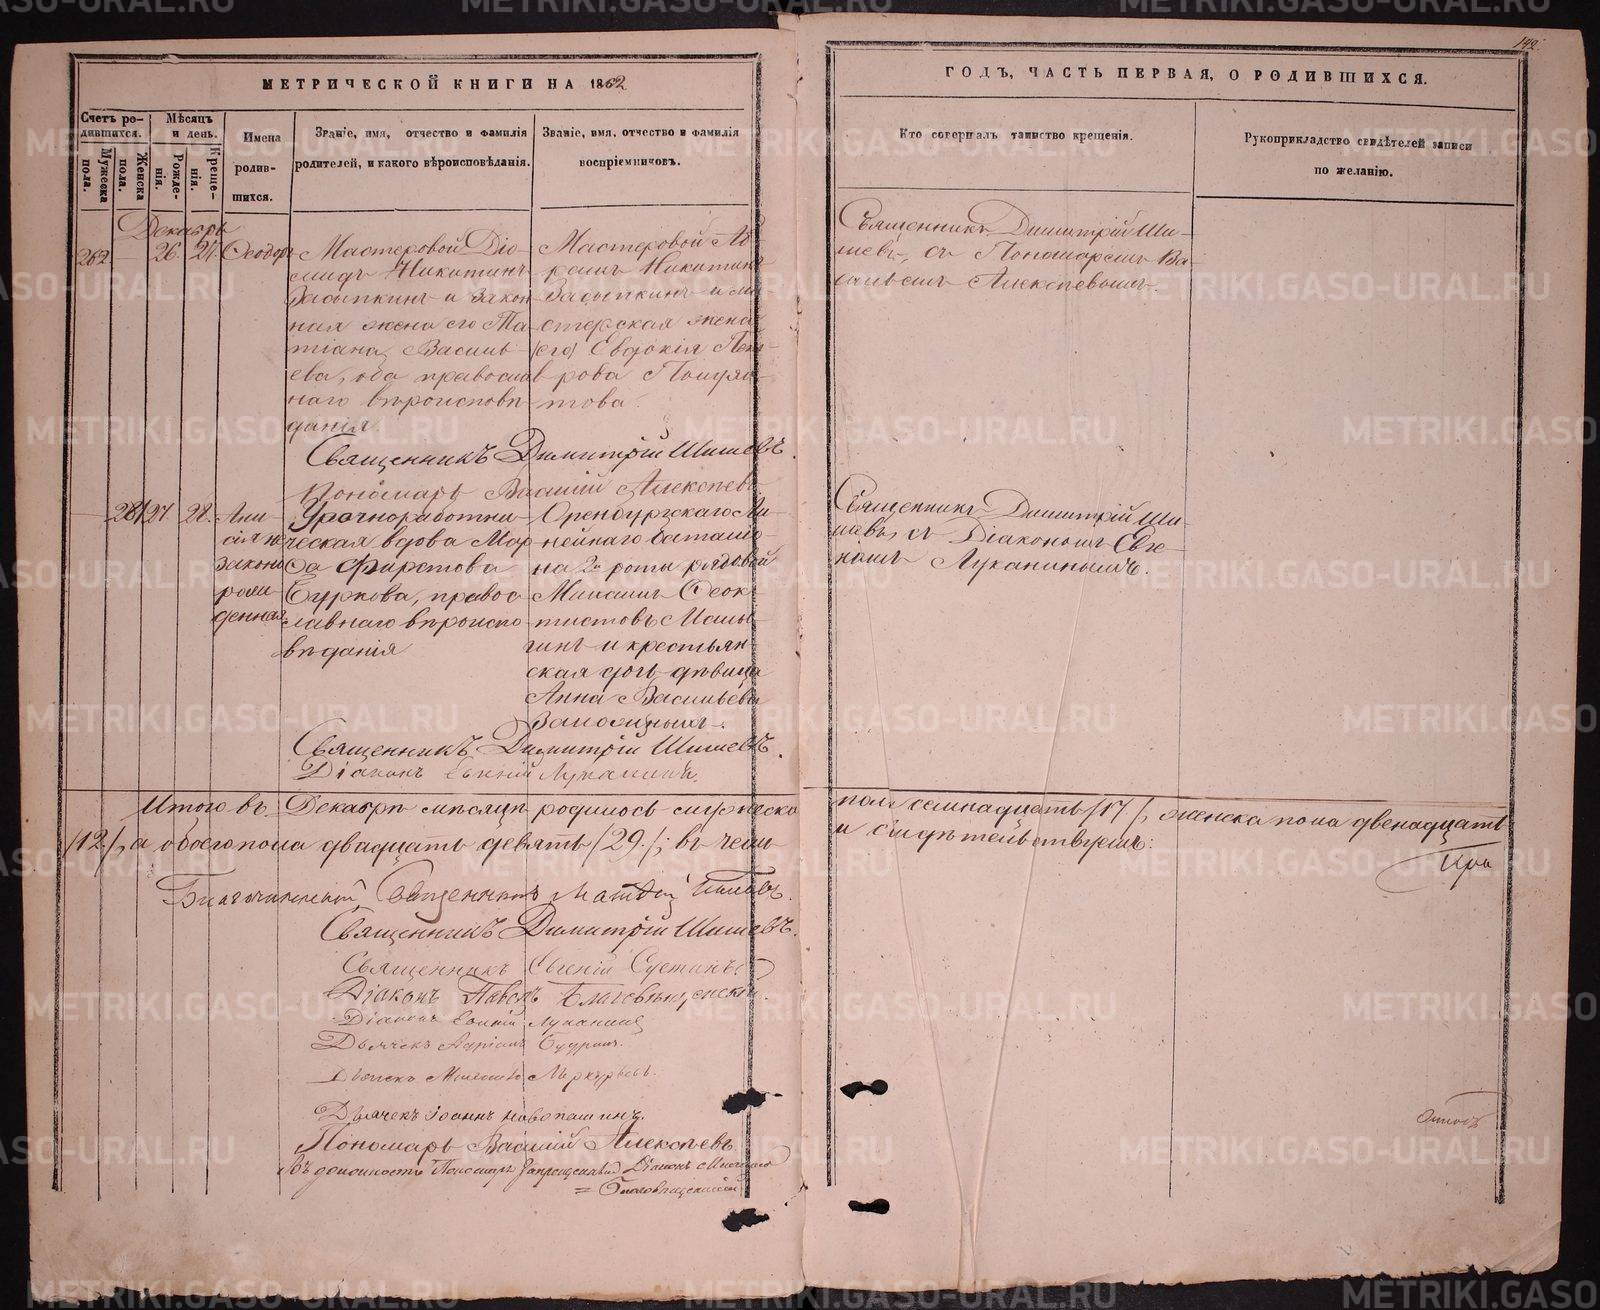 142.
МЕТРИЧЕСКОЙ КНИГИ НА 1862
ГОДЪ, ЧАСТЬ ПЕРВАЯ, О РОДИВШИХСЯ.
Счетъ ро-
дившихся.
Мужеска
пола.
Женска
пола.
Мѣсяцъ
и день.
Рожде-
нія.
Креще-
нія.
Имена
родив-
шихся.
Званіе, имя, отчество и фамилія
родителей, и какого вѣроисповѣданія.
Званіе, имя, отчество и фамилія
воспріемниковъ.
Кто совершалъ таинство крещенія.
Рукоприкладство свидѣтелей записи
по желанію.
Декабрь
262
26.
27.
Ѳеодоръ
Мастеровой Діо-
мидъ Никитинъ
Засыпкинъ и закон
ная жена его Та-
тіана Василь
ева, оба православ
наго вѣроисповѣ
данія.
Мастеровой Аб
рамъ Никитинъ
Засыпкинъ и ма
стерская жена
Евдокія
рова
това.
Священникъ Димитрій Ши-
шевъ, съ Пономаремъ Ва-
сильемъ Алексѣевымъ.
Священникъ Димитрій Шишевъ.
Пономарь Василій Алексѣевъ
281
27
28.
Ани-
сія не
законно
рож
денная
Урочноработни-
ческая вдова Мар
ѳа
Буркова, правос
лавнаго вѣроиспо
вѣданія
Оренбургскаго Ли
нейнаго баталіо
на 2й роты рядовой
Михаилъ Ѳеок
тистовъ
гинъ и крестьян-
ская дочь дѣвица
Анна Васильева
Священникъ Димитрій Ши-
шевъ, съ Діакономъ Евѳи-
міемъ Луканинымъ.
Священникъ Димитрій Шишевъ.
Діаконъ Евѳимій Луканинъ.
Итого въ Декабрѣ мѣсяцѣ родилось мужеска
пола семнадцать /17/, женска пола двенадцать
/12/, а обоего пола двадцать девять /29/; въ чемъ
и свидѣтельствуемъ:
При
Благочинный Священникъ Матѳій Поповъ.
Священникъ Димитрій Шишевъ.
Священникъ Евгеній Суетинъ
Діаконъ Павелъ Благовѣщенскій.
Діаконъ Евѳимій Луканинъ
Дьячекъ Адріанъ Будринъ.
Дьячекъ Меркурьевъ.
Дьячекъ Іоаннъ Новопашинъ.
Пономарь Василій Алексѣевъ
Въ должности Пономаря запрещенный Діаконъ
Благовѣщенскій